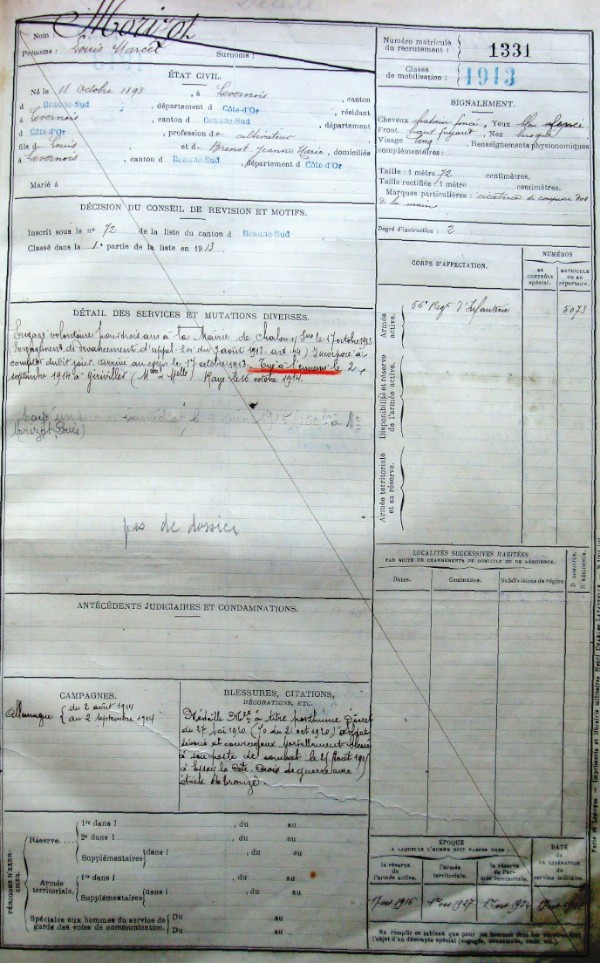 Décédé
Nom : Morizot
Prénoms : Louis Marcel Surnoms :
Numéro matricule
du recrutement : 1331
Classe
de mobilisation : 1913
ÉTAT CIVIL.
Né le 11 Octobre 1893, à Levernois, canton
d Beaune-Sud, département d Côte-d'Or, résidant
à Levernois, canton d Beaune-Sud, département
d Côte-d'Or, profession de cultivateur
fils de Louis et de Brenot Jeanne Marie, domiciliés
à Levernois, canton d Beaune-Sud, département d Côte-d'Or
Marié à
SIGNALEMENT.
Cheveux châtain foncé, Yeux bleu
Front haut fuyant, Nez busqué
Visage long, Renseignements physionomiques
complémentaires :
Taille : 1 mètre 72 centimètres.
Taille rectifiée : 1 mètre centimètres.
Marques particulières : cicatrice de coupure dos
de la main
Degré d'instruction : 2
DÉCISION DU CONSEIL DE REVISION ET MOTIFS.
Inscrit sous le n° 72 de la liste du canton d Beaune-Sud
Classé dans la 1e partie de la liste en 1913
CORPS D'AFFECTATION.
NUMÉROS
AU CONTRÔLE spécial.
MATRICULE OU AU répertoire.
Armée active.
56e Regt d'Infanterie 5073
Disponibilité et réserve de l'armée active.
Armée territoriale et sa réserve.
DÉTAIL DES SERVICES ET MUTATIONS DIVERSES.
Engagé volontaire pour trois ans à la Mairie de Chalon s/ Sne le 17 octobre 1913.
Engagement de devancement d'appel. Loi du 7 août 1913 art.
compter dudit jour. Arrivé au corps le 17 octobre 1913. Tué à l'ennemi le 2
septembre 1914 à Giriviller (Mthe & Melle) Rayé le 16 octobre 1914.
immédiat 1915 150 à Mr
Morizot
pas de dossier
LOCALITÉS SUCCESSIVES HABITÉES
PAR SUITE DE CHANGEMENTS DE DOMICILE OU DE RÉSIDENCE.
Dates. Communes. Subdivisions de région. D. DOMICILE. R. RÉSIDENCE.
ANTÉCÉDENTS JUDICIAIRES ET CONDAMNATIONS.
CAMPAGNES.
Allemagne { du 2 août 1914
au 2 septembre 1914
BLESSURES, CITATIONS,
DÉCORATIONS, ETC.
Médaille Mre à titre posthume Décret
du 27 mai 1920 (JO du 21 oct 1920)
dévoué et courageux mortellement
à son poste de combat le 25 août 1914
à Essey la Côte. Croix de guerre avec
étoile de bronze.
PÉRIODES D'EXERCICES.
Réserve.... { 1re dans l , du au
2e dans l , du au
Supplémentaires { dans l , du au
dans l , du au
Armée territoriale. { 1re dans l , du au
Supplémentaires { dans l , du au
dans l , du au
Spéciales aux hommes du service de
garde des voies de communication. { Du au
Du au
ÉPOQUE
À LAQUELLE L'HOMME DOIT PASSER DANS :
la réserve de l'armée active. l'armée territoriale. la réserve de l'armée territoriale.
DATE
DE LA LIBÉRATION du service militaire.
1916 1927 1934
Ne remplir ce tableau que pour les hommes dont les services font
l'objet d'un décompte spécial (engagés, omis, etc.).